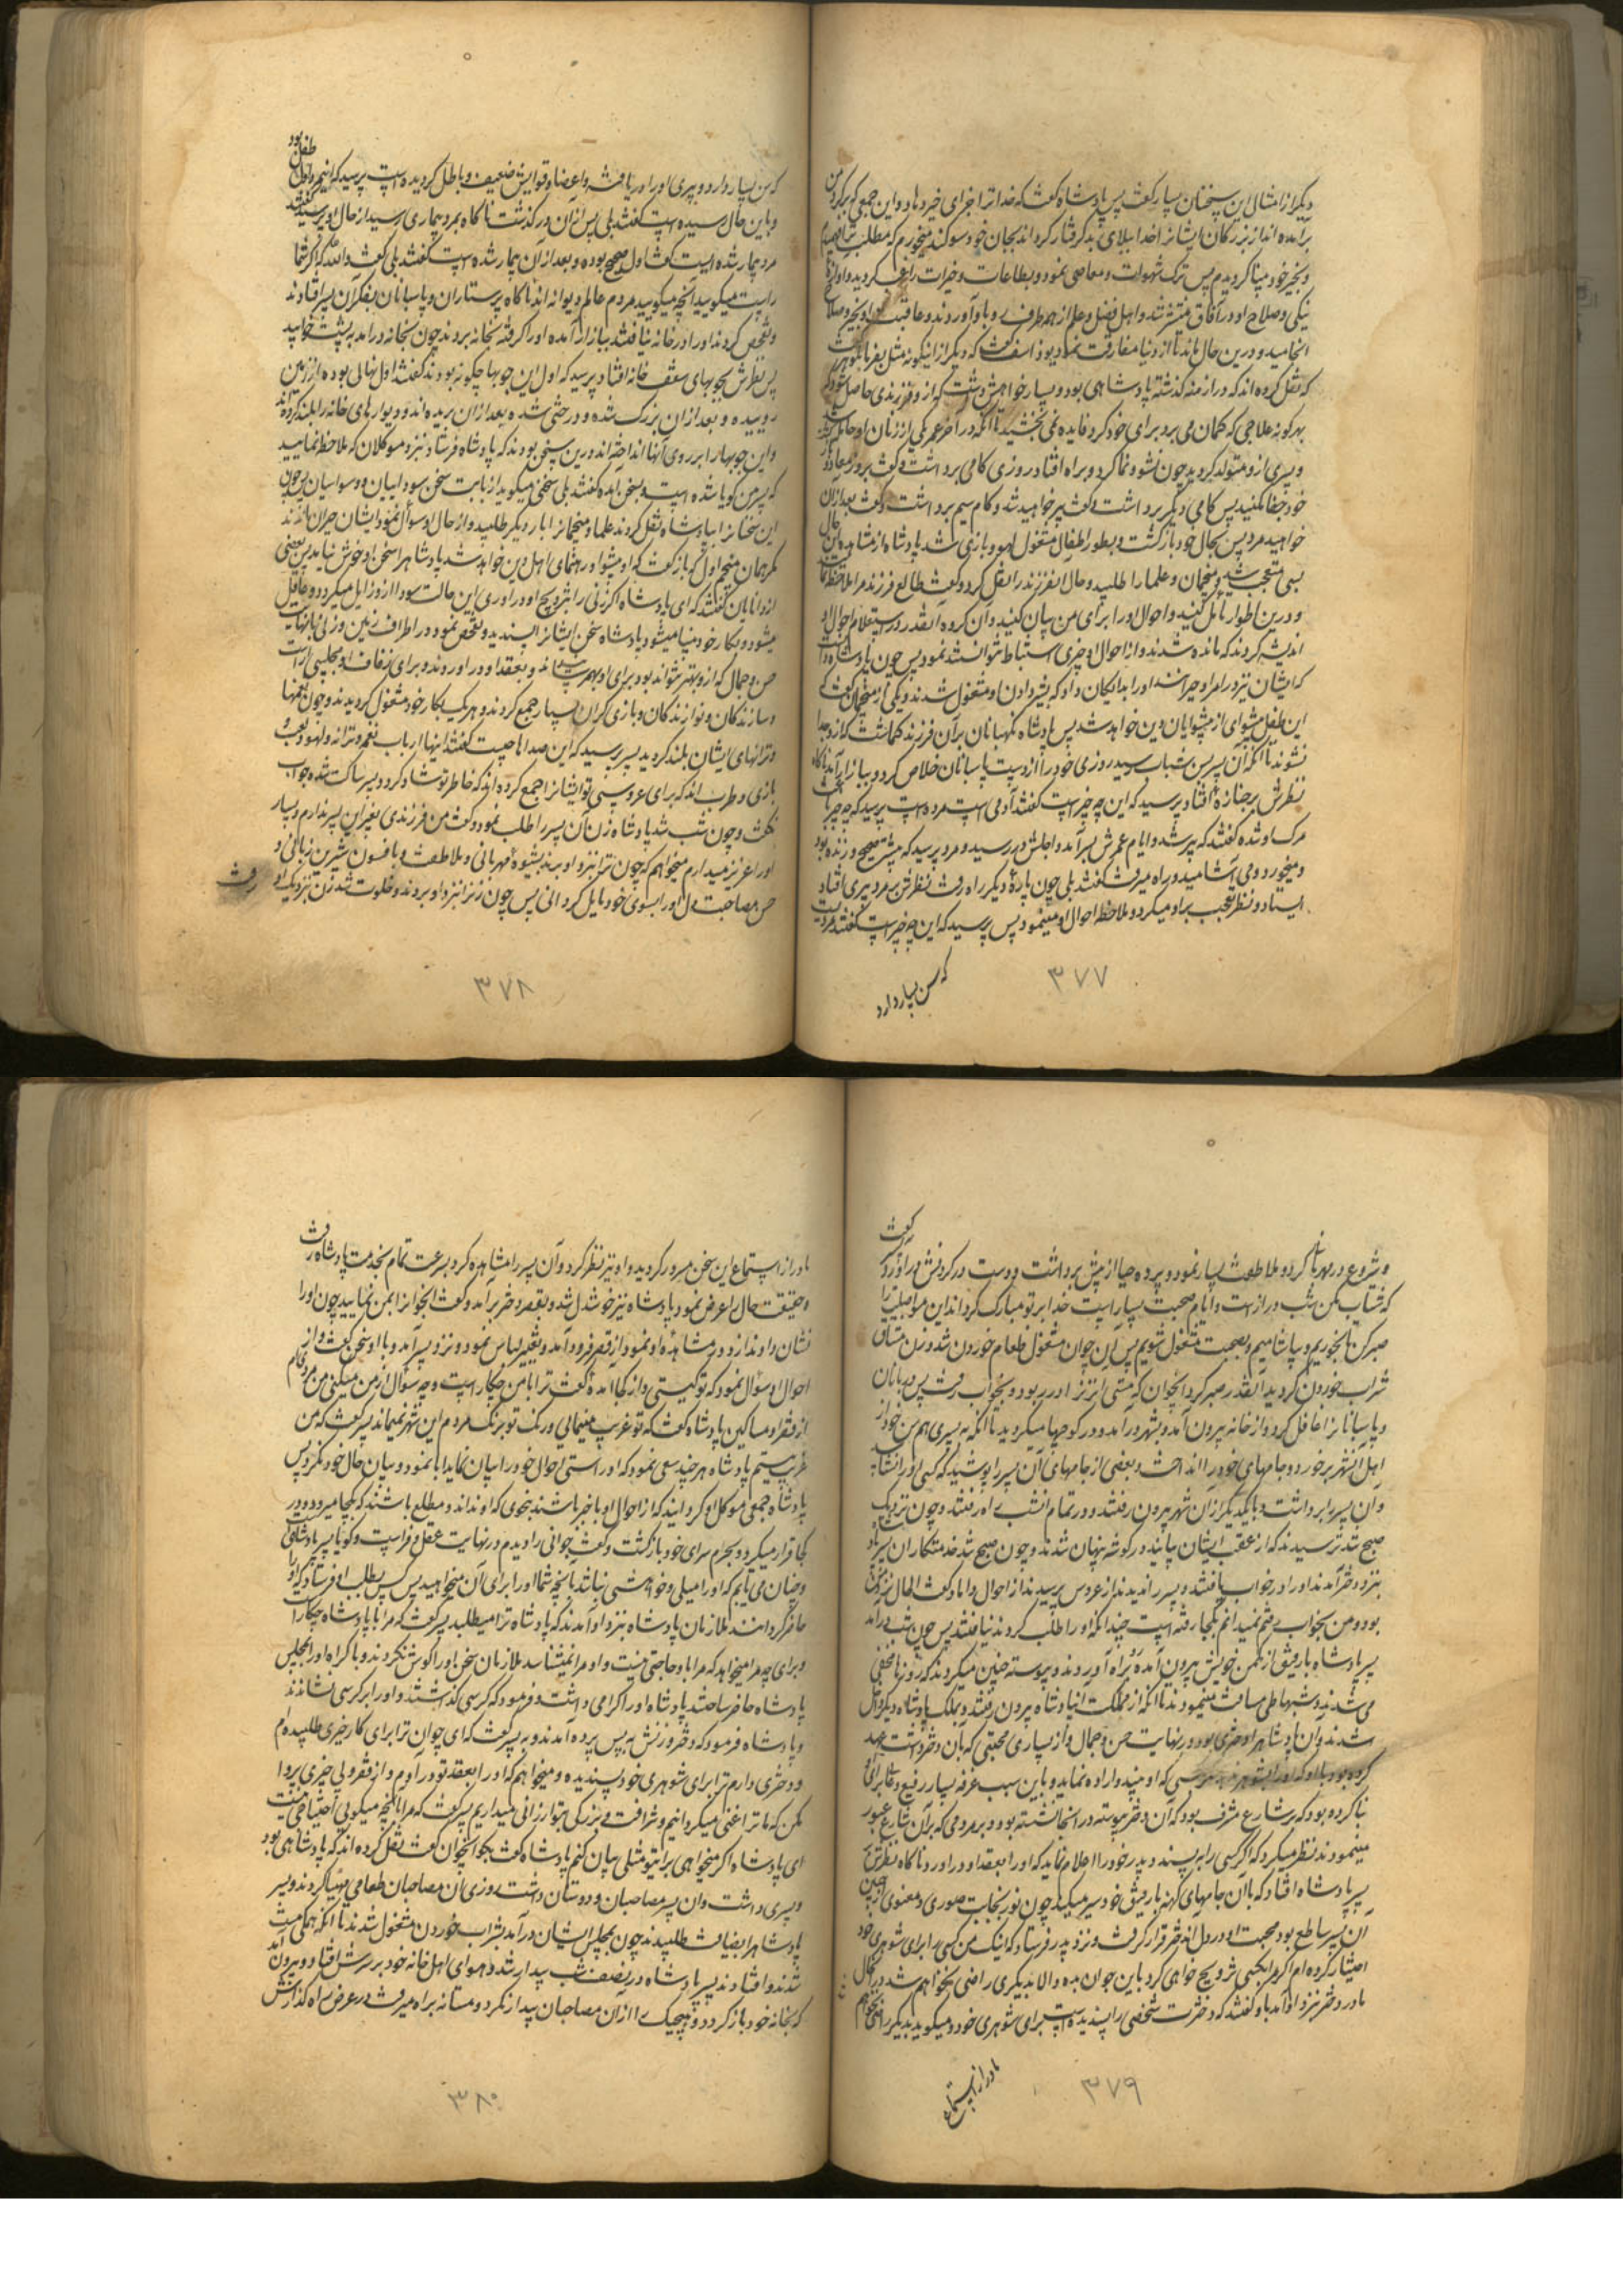 دیگر از امثال این سخنان بسیار گفت پس پادشاه گفت که خدا ترا جزای خیر دهاد و این جمعی که بر گرد من
برآمده اند از بزرگان ایشانرا خدا ببلای بد گرفتار گرداند بجان خود سوگند میخورم که مطلب ترا فهمیدم
و بخیر خود بینا گردیدم پس ترک شهوات و معاصی نمود و بطاعات و خیرات راغب گردید و آوازۀ
نیکی و صلاح او در آفاق منتشر شد و اهل فضل و علم از همه طرف رو باو آوردند و عاقبت او بخیر و صلاح
انجامید و درین حال ماند تا از دنیا مفارقت نمود یوذاسف گفت که دیگر از اینگونه مثل بفرما بلوهر گفت
که نقل کرده اند که در ازمنه گذشته پادشاهی بود و بسیار خواهش داشت که از و فرزندی حاصل شود و
بهرگونه علاجی که گمان می برد برای خود کرد فایده نمی بخشید تا آنکه در آخر عمر یکی از زنان او حامله شد
و پسری ازو متولد گردید چون نشو و نما کرد و براه افتاد روزی کامی برداشت و گفت بروز معاد
خود جفا میکنید پس کامی دیگر برداشت و گفت پیر خواهید شد و کام سیم برداشت و گفت بعد از آن
خواهید مرد پس بحال خود بازگشت و بطور اطفال مشغول لهو و بازی شد پادشاه از مشاهده این حال
بسی متعجب شد و منجمان و علما را طلبید و حال آنفرزند را نقل کرد و گفت طالع فرزند مرا ملاحظه نمایید
و درین اطوار تأمل کنید و احوال او را برای من بیان کنید و آن گروه آنقدر در استعلام احوال او
اندیشه کردند که مانده شدند و از احوال او چیزی استنباط نتوانستند نمود پس چون پادشاه دانست
که ایشان نیز در امر او حیرانند او را بدایگان داد که بشیر دادن او مشغول شدند و یکی از منجمان گفت که
این طفل پیشوای از پیشوایان دین خواهد شد پس پادشاه نگهبانان بر آن فرزند گماشت که ازو جدا
نشوند تا آنکه آن پسر بسن شباب رسید روزی خود را از دست پاسبانان خلاص کرد و ببازار آمد ناگاه
نظرش بر جنازۀ افتاد پرسید که این چه چیز است گفتند آدمی است مرده است پرسید که چه چیز باعث
مرگ او شده گفتند که پیر شد و ایام عمرش بسر آمد و اجلش در رسید و مرد پرسید که پیشتر صحیح و زنده بود
و میخورد و می آشامید و راه میرفت گفتند بلی چون پارۀ دیگر راه رفت نظرش بر مرد پیری افتاد
ایستاد و نظر تعجب بر او میکرد و ملاحظۀ احوال او مینمود پس پرسید که این چه چیز است گفتند مردیست
که سن بسیار دارد
۳۷۷
که سن بسیار دارد و پیری او را دریافته و اعضا و قوایش ضعیف و باطل گردیده است پرسید که این مرد اول طفل بود
و باین حال رسیده است گفتند بلی پس از آن درگذشت ناگاه بمرد بیماری رسید از حال او پرسید گفتند
مرد بیمار شده است گفت اول صحیح بوده و بعد از آن بیمار شده است گفتند بلی گفت والله که اگر شما
راست میگویید آنچه میگویید مردم عالم دیوانه اند ناگاه پرستاران و پاسبانان بفکر آن پسر افتادند
و تفحص کردند او را در خانه نیافتند ببازار آمده او را گرفته بخانه بردند چون بخانه درآمد به پشت خوابید
پس نظرش بچوبهای سقف خانه افتاد پرسید که اول این چوبها چگونه بودند گفتند اول نهالی بوده از زمین
روییده و بعد از آن بزرگ شده و درختی شده بعد از آن بریده اند و دیوارهای خانه را بلند کرده اند
و این چوبها را بر روی آنها انداخته اند درین سخن بودند که پادشاه فرستاد بنزد موکلان که ملاحظه نمایید
که پسر من گویا شده است و بسخن آمده گفتند بلی سخنی میگوید از بابت سخن سوداییان و وسواسیان پس چون
این سخنانرا بپادشاه نقل کردند علما و منجمانرا بار دیگر طلبید و از حال او سؤال نمود ایشان حیران ماندند
مگر همان منجم اول که باز گفت که او پیشوا و رهنمای اهل دین خواهد شد پادشاه را سخن او خوش نیامد پس بعضی
از دانایان گفتند که ای پادشاه اگر زنی را بتزویج او در آوری این حالت سودا از و زایل میگردد و عاقل
میشود و بکار خود بینا میشود پادشاه سخن ایشانرا پسندید و تفحص نمود در اطراف زمین و زنی بنهایت
حسن و جمال که از و بهتر نتواند بود برای او بهم رسانید و بعقد او در آوردند و برای زفاف او مجلسی آراست
و سازندگان و نوازندگان و بازیگران بسیار جمع کردند و هر یک بکار خود مشغول گردیدند و چون نغمها
و ترانهای ایشان بلند گردید پسر پرسید که این صداها چیست گفتند اینها ارباب نغمه و ترانه و لهو و لعب و
بازی و طرب اند که برای عروسی تو ایشانرا جمع کرده اند که خاطر تو شاد گردد پسر ساکت شد و جواب
نگفت و چون شب شد پادشاه زن آن پسر را طلب نمود و گفت من فرزندی بغیر این پسر ندارم و بسیار
او را عزیز میدارم میخواهم که چون ترا بنزد او برند بشیوۀ مهربانی و ملاطفت و بافسون شیرین زبانی و
حسن مصاحبت دل او را بسوی خود مایل گردانی پس چون زن را بنزد او بردند و خلوت شد زن نزدیک او رفت
۳۷۸
و شروع در مهربانی کرد و ملاطفت بسیار نمود و پرده حیا از پیش برداشت و دست در گردنش در آورد گفت
که شتاب مکن شب دراز است و ایام صحبت بسیار است خدا بر تو مبارک گرداند این مواصلت را
صبر کن تا بخوریم و بیاشامیم و بصحبت مشغول شویم پس آن جوان مشغول طعام خوردن شد و زن مشتاق
شراب خوردن گردید آنقدر صبر کرد آنجوان که مستی آنزن را در ربود و بخواب رفت پس دربانان
و پاسبانانرا غافل کرد و از خانه بیرون آمد و بشهر در آمد و در کوچها میگردید تا آنکه به پسری هم سن خود از
اهل آنشهر برخورد و جامهای خود را انداخت و بعضی از جامهای آن پسر را پوشید که کسی او را نشناسد
و آن پسر را برداشت و با یکدیگر از آن شهر بیرون رفتند و در تمام آنشب راه رفتند و چون نزدیک
صبح شد ترسیدند که از عقب ایشان بیایند در گوشه پنهان شدند و چون صبح شد خدمتکاران پسر
بنزد دختر آمدند او را در خواب یافتند و پسر را ندیدند از عروس پرسیدند از احوال داماد گفت الحال نزد من
بود و من بخواب رفتم نمیدانم بکجا رفته است چندانکه او را طلب کردند نیافتند پس چون شب در آمد
پسر پادشاه با رفیق از مکمن خویش بیرون آمده رو براه آوردند و پیوسته چنین میکردند که روزها مخفی
می شدند و شبها طی مسافت مینمودند تا آنکه از مملکت آن پادشاه بیرون رفتند و بملک پادشاه دیگر داخل
شدند و آن پادشاه را دختری بود در نهایت حسن و جمال و از بسیاری محبتی که بآن دختر داشت عهد
کرده بود با او که او را بشوهر ندهد مگر بکسی که او بپسندد و اراده نماید و باین سبب غرفه بسیار رفیع و عالی برای او
بنا کرده بود که بر شارع مشرف بود که آن دختر پیوسته در آنجا نشسته بود و بر مردمی که بر آن شارع عبور
مینمودند نظر میکرد که اگر کسی را به پسندد پدر خود را اعلام نماید که او را بعقد او در آورد ناگاه نظرش بر
پسر پادشاه افتاد که با آن جامهای کهنه با رفیق خود سیر میکند چون نور نجابت صوری و معنوی از جبین
آن پسر ساطع بود محبت او در دل آندختر قرار گرفت و نزد پدر فرستاد که اینک من کسی را برای شوهری خود
اختیار کرده ام اگر مرا بکسی تزویج خواهی کرد باین جوان بده والا بدیگری راضی نخواهم شد در آنحال
مادر دختر نزد او آمد باو گفتند که دخترت شخصی را پسندیده است برای شوهری خود و میگوید بدیگری راضی نخواهم
مادر از استماع
۳۷۹
مادر از استماع این سخن مسرور گردید و او نیز نظر کرد و آن پسر را مشاهده کرد بسرعت تمام بخدمت پادشاه رفت
و حقیقت حال را عرض نمود پادشاه نیز خوشدل شد و بقصر دختر بر آمد و گفت آنجوانرا بمن نمایید چون او را
نشان دادند از دور مشاهدۀ او نمود از قصر فرود آمد و تغییر لباس نمود و نزد پسر آمد و با او سخن گفت و از
احوال او سؤال نمود که تو کیستی و از کجا آمدۀ گفت ترا با من چکار است و چه سؤال از من میکنی من مردی ام
از فقرا و مساکین پادشاه گفت که تو غریب مینمایی و رنگ تو برنگ مردم این شهر نمیماند پسر گفت که من
غریب نیستم پادشاه هر چند سعی نمود که او راستی احوال خود را بیان نماید ابا نمود و بیان حال خود نکرد پس
پادشاه جمعی موکل او گردانید که از احوال او با خبر باشند بنحوی که او نداند و مطلع باشند که بکجا میرود و در
کجا قرار میگیرد و بحرم سرای خود بازگشت و گفت جوانی را دیدم در نهایت عقل و فراست و گویا پسر پادشاهی
و چنان می یابم که او را میلی و خواهشی نباشد بآنچه شما او را برای آن میخواهید پس کس بطلب او فرستاد که او را
حاضر گردانند ملازمان پادشاه بنزد او آمدند که پادشاه ترا میطلبد پسر گفت که مرا با پادشاه چکار است
و برای چه مرا میخواهد که مرا باو حاجتی نیست و او مرا نمیشناسد ملازمان سخن او را گوش نکردند و باکراه او را بمجلس
پادشاه حاضر ساختند پادشاه او را گرامی داشت و فرمود که کرسی گذاشتند و او را بر کرسی نشاندند
و پادشاه فرمود که دختر و زنش به پس پرده آمدند و به پسر گفت که ای جوان ترا برای کار خیری طلبیده ام
و دختری دارم ترا برای شوهری خود پسندیده و میخواهم که او را بعقد تو در آورم و از فقر و بی چیزی پروا
مکن که ما ترا غنی میگردانیم و شرافت و بزرگی بتو ارزانی میداریم پسر گفت که مرا بآنچه میگویی احتیاجی نیست
ای پادشاه اگر میخواهی برای تو مثلی بیان کنم پادشاه گفت بگو آنجوان گفت نقل کرده اند که پادشاهی بود
و پسری داشت و آن پسر مصاحبان و دوستان داشت روزی آن مصاحبان طعامی مهیا کردند و پسر
پادشاه را بضیافت طلبیدند چون بمجلس ایشان در آمد بشراب خوردن مشغول شدند تا آنکه همگی مست
شدند و افتادند پسر پادشاه در نصف شب بیدار شد و هوای اهل خانه خود بر سرش افتاد و بیرون آمد
که بخانه خود باز گردد و هیچیک را از آن مصاحبان بیدار نکرد و مستانه براه میرفت در عرض راه گذارش
۳۸۰